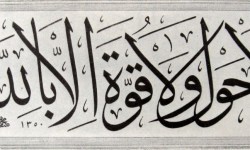 حَوْلَ وَلَا قُوَّةَ إِلَّا بِاللّٰه
١٣٥٠